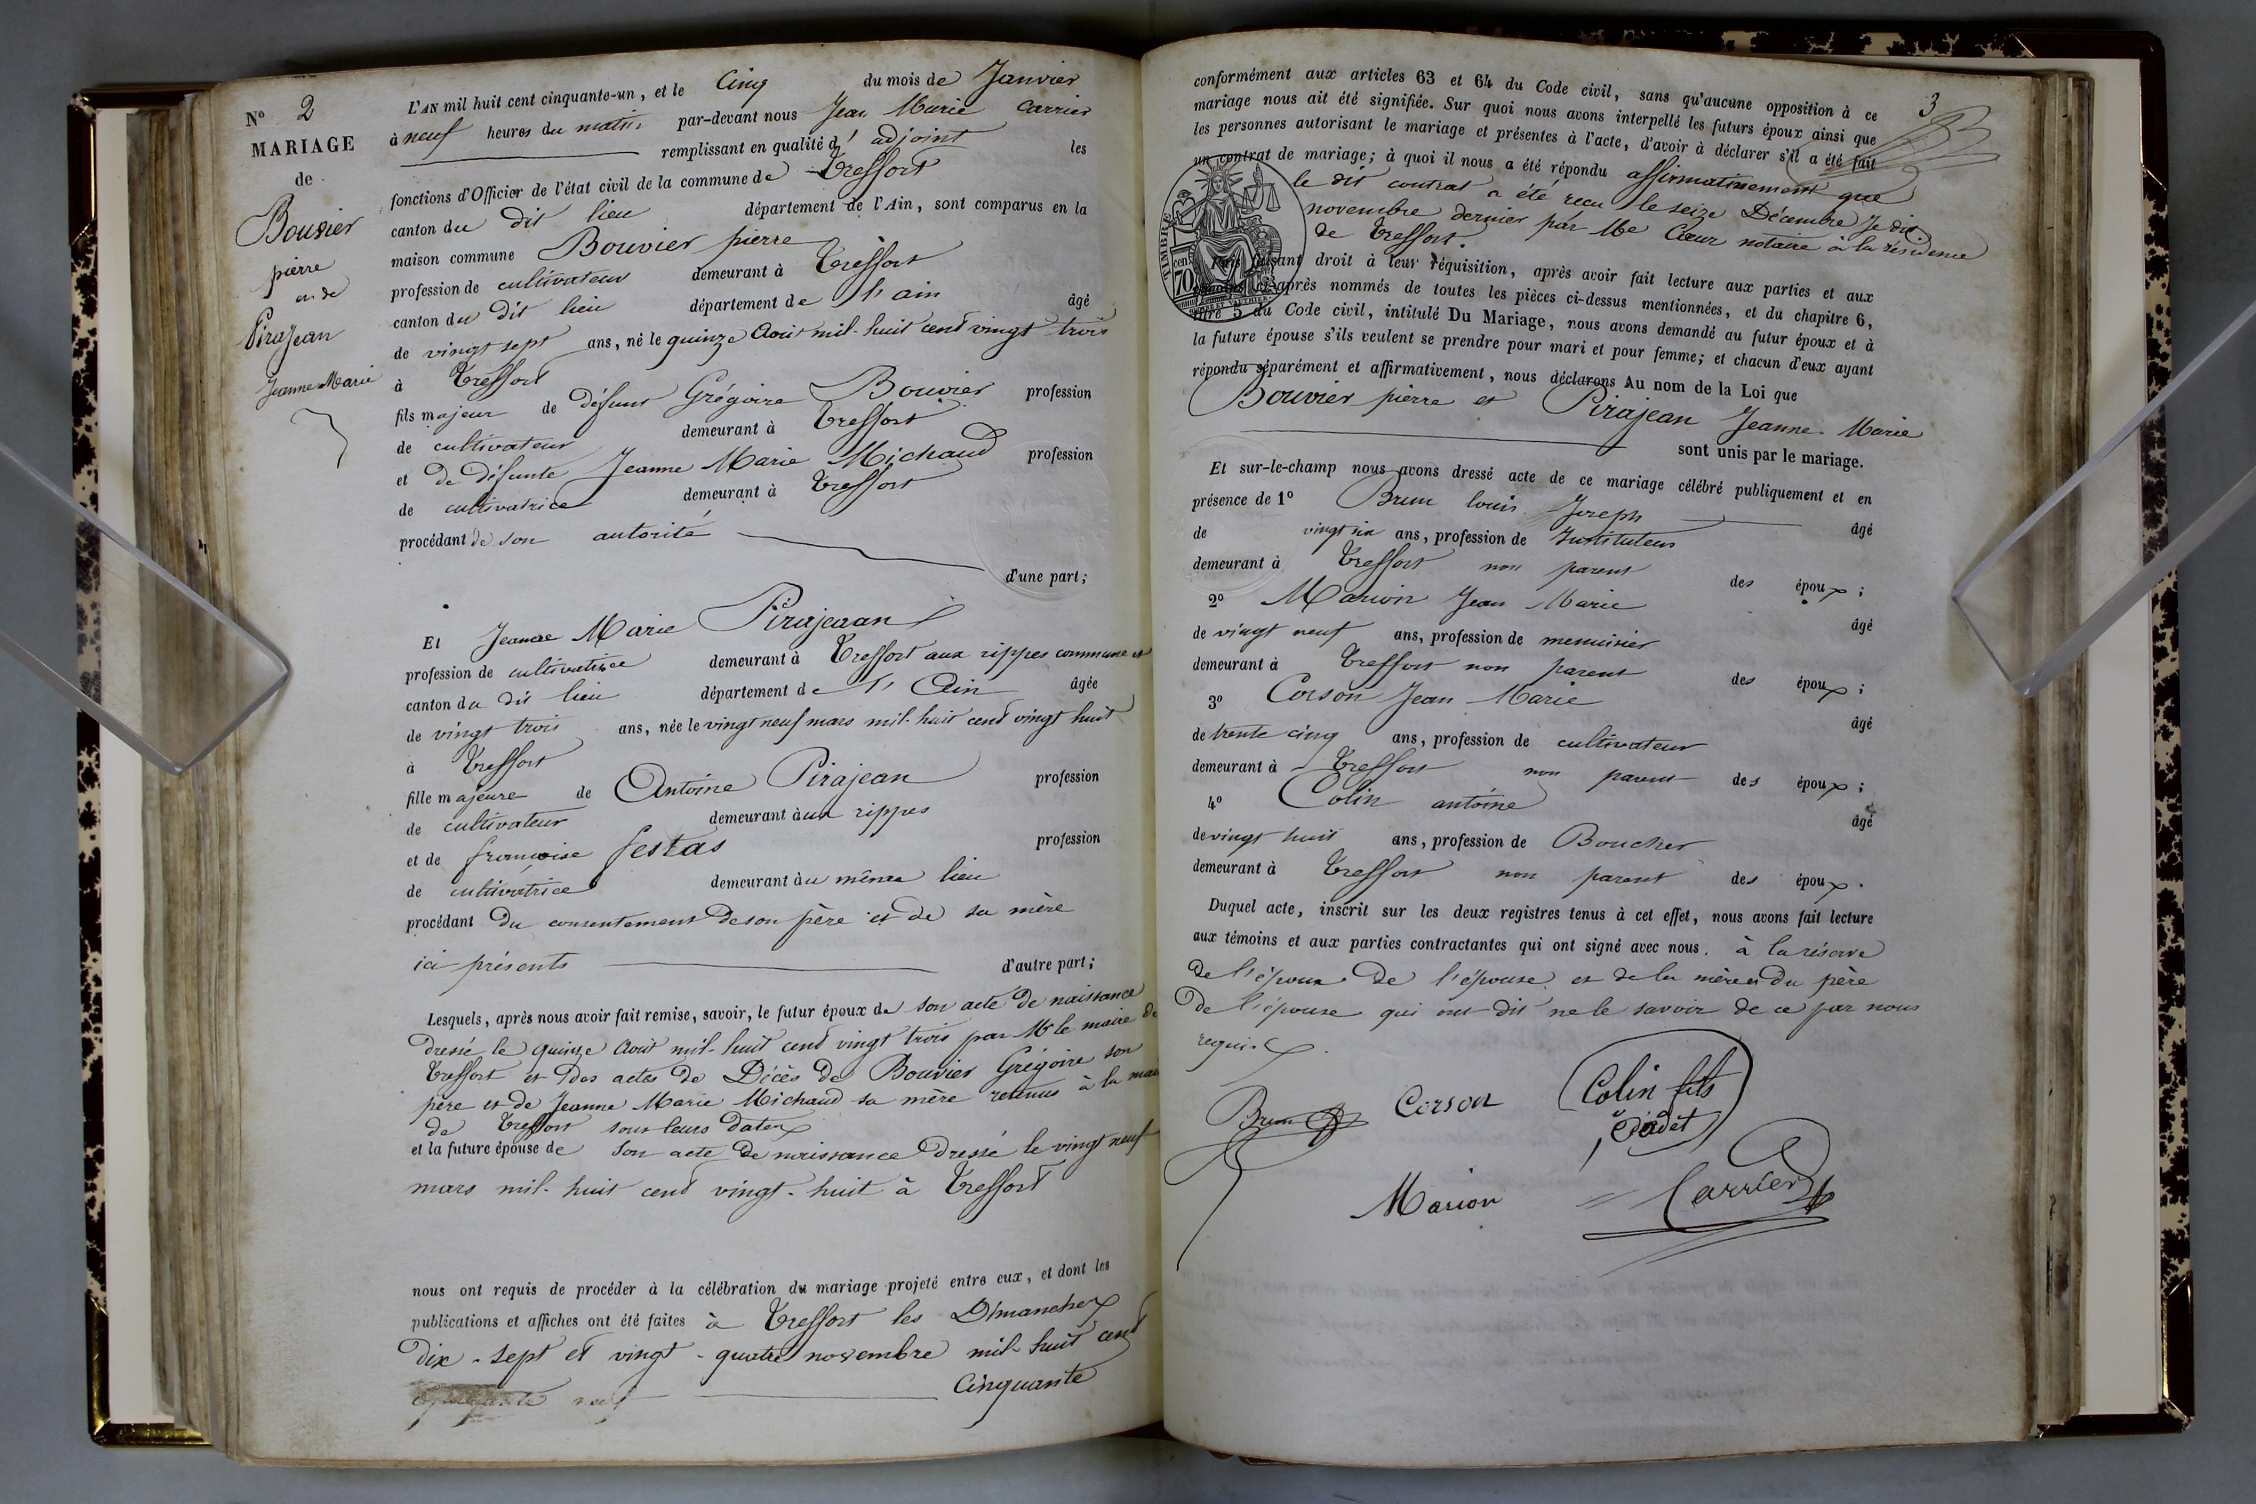 Nº 2
MARIAGE
de
Bouvier
pierre
et de
Pirajean
Jeanne Marie
L'AN mil huit cent cinquante-un, et le Cinq du mois de Janvier
à neuf heures du matin par-devant nous Jean Marie Carrier
remplissant en qualité d'adjoint les
fonctions d'Officier de l'état civil de la commune de Treffort
canton du dit lieu département de l'Ain, sont comparus en la
maison commune Bouvier pierre
profession de cultivateur demeurant à Treffort
canton du dit lieu département de l'ain âgé
de vingt sept ans, né le quinze Août mil-huit cent vingt trois
à Treffort
fils majeur de défunt Grégoire Bouvier profession
de cultivateur demeurant à Treffort
et de défunte Jeanne Marie Michaud profession
de cultivatrice demeurant à Treffort
procédant de son autorité
d'une part;
Et Jeanne Marie Pirajean
profession de cultivatrice demeurant à Treffort aux rippes commune et
canton du dit lieu département de l'Ain âgée
de vingt trois ans, née le vingt neuf mars mil-huit cent vingt huit
à Treffort
fille majeure de Antoine Pirajean profession
de cultivateur demeurant aux rippes
et de françoise festas profession
de cultivatrice demeurant au même lieu
procédant du consentement de son père et de sa mère
ici présents d'autre part;
Lesquels, après nous avoir fait remise, savoir, le futur époux de son acte de naissance
dressé le quinze Août mil-huit cent vingt trois par Mr le maire de
Treffort et des actes de Décès de Bouvier Grégoire son
père et de Jeanne Marie Michaud sa mère retenus à la
de Treffort sous leurs dates
et la future épouse de son acte de naissance dressé le vingt neuf
mars mil-huit cent vingt-huit à Treffort
nous ont requis de procéder à la célébration du mariage projeté entre eux, et dont les
publications et affiches ont été faites à Treffort les Dimanches
dix-sept et vingt-quatre novembre mil-huit cent
cinquante
3
conformément aux articles 63 et 64 du Code civil, sans qu'aucune opposition à ce
mariage nous ait été signifiée. Sur quoi nous avons interpellé les futurs époux ainsi que
les personnes autorisant le mariage et présentes à l'acte, d'avoir à déclarer s'il a été fait
un contrat de mariage; à quoi il nous a été répondu affirmativement que
le dit contrat a été reçu le seize Décembre Je dis
novembre dernier par Me Cœur notaire à la résidence
de Treffort.
TIMBRE
70 cent
faisant droit à leur réquisition, après avoir fait lecture aux parties et aux
ci-après nommés de toutes les pièces ci-dessus mentionnées, et du chapitre 6,
titre 5 du Code civil, intitulé Du Mariage, nous avons demandé au futur époux et à
la future épouse s'ils veulent se prendre pour mari et pour femme; et chacun d'eux ayant
répondu séparément et affirmativement, nous déclarons Au nom de la Loi que
Bouvier pierre et Pirajean Jeanne-Marie
sont unis par le mariage.
Et sur-le-champ nous avons dressé acte de ce mariage célébré publiquement et en
présence de 1º Brun louis Joseph âgé
de vingt six ans, profession de Instituteur
demeurant à Treffort non parent des époux;
2º Marion Jean Marie âgé
de vingt neuf ans, profession de menuisier
demeurant à Treffort non parent des époux;
3º Corson Jean Marie âgé
de trente cinq ans, profession de cultivateur
demeurant à Treffort non parent des époux;
4º Colin antoine âgé
de vingt huit ans, profession de Boucher
demeurant à Treffort non parent des époux.
Duquel acte, inscrit sur les deux registres tenus à cet effet, nous avons fait lecture
aux témoins et aux parties contractantes qui ont signé avec nous. à la réserve
de l'époux de l'épouse et de la mère et du père
de l'épouse qui ont dit ne le savoir de ce par nous
requis
Brun Corson Colin fils
Cadet
Marion Carrier